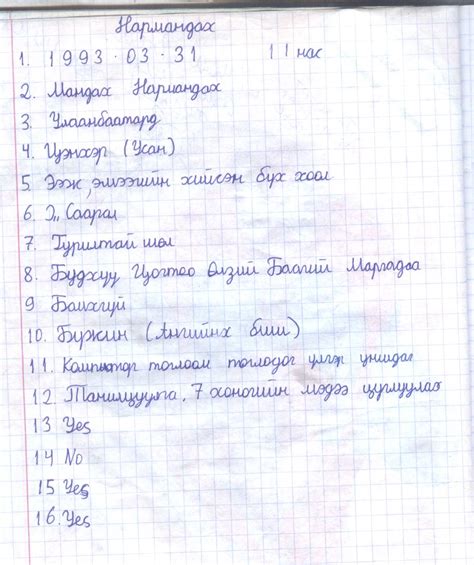 Нармандах
1. 1993.03.31 11 нас
2. Мандах Нармандах
3. Улаанбаатард
4. Цэнхэр (Усан)
5. Ээж, эмээгийн хийсэн бүх хоол
6. Э. Саарал
7. Гурилтай шөл
8. Будхүү Цогтоо Өлзий Баагий Маргадаа
9 Байхгүй
10. Бүжин (Ангийнх биш)
11. Компьютор тоглоом тоглодог үлгэр уншдаг
12 Танилцуулга, 7 хоногийн мэдээ цуглуулах
13 Yes
14 No
15 Yes
16. Yes